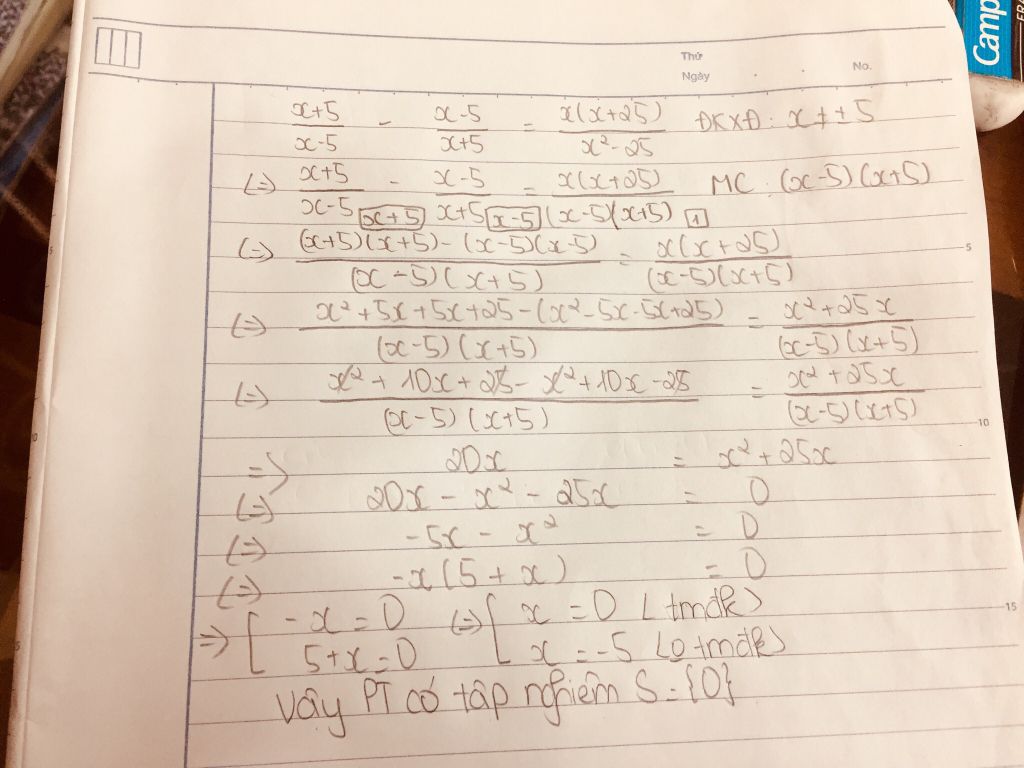 Camp
Thứ
Ngày . . No.
x+5/x-5 - x-5/x+5 = x(x+25)/x²-25 ĐKXĐ: x ≠ ±5
(=) x+5/x-5 [x+5] - x-5/x+5 [x-5] = x(x+25)/(x-5)(x+5) [1] MC: (x-5)(x+5)
(=) (x+5)(x+5)-(x-5)(x-5)/(x-5)(x+5) = x(x+25)/(x-5)(x+5)
5
(=) x²+5x+5x+25-(x²-5x-5x+25)/(x-5)(x+5) = x²+25x/(x-5)(x+5)
(=) x²+10x+25-x²+10x-25/(x-5)(x+5) = x²+25x/(x-5)(x+5)
10
=> 20x = x²+25x
(=) 20x - x² - 25x = 0
(=) -5x - x² = 0
(=) -x(5+x) = 0
=> [ -x = 0 (=) [ x = 0 (tmđk)
15
5+x=0 x = -5 (0 tmđk)
Vây PT có tâp nghiêm S={0}